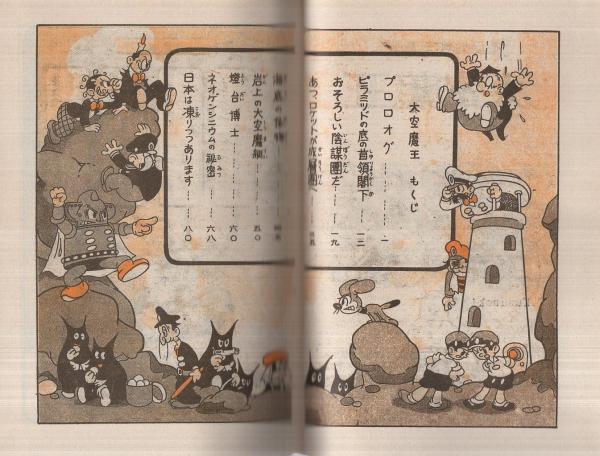 大空魔王 もくじ
プロローグ……一
ピラミッドの底の首領閣下……一三
おそろしい陰謀團だ……一九
あつロケットが成層圏へ
海底の怪物
岩上の大空魔艇……五〇
燈台博士……六〇
ネオゲンシニウムの祕密……六八
日本は凍りつつあります……八〇